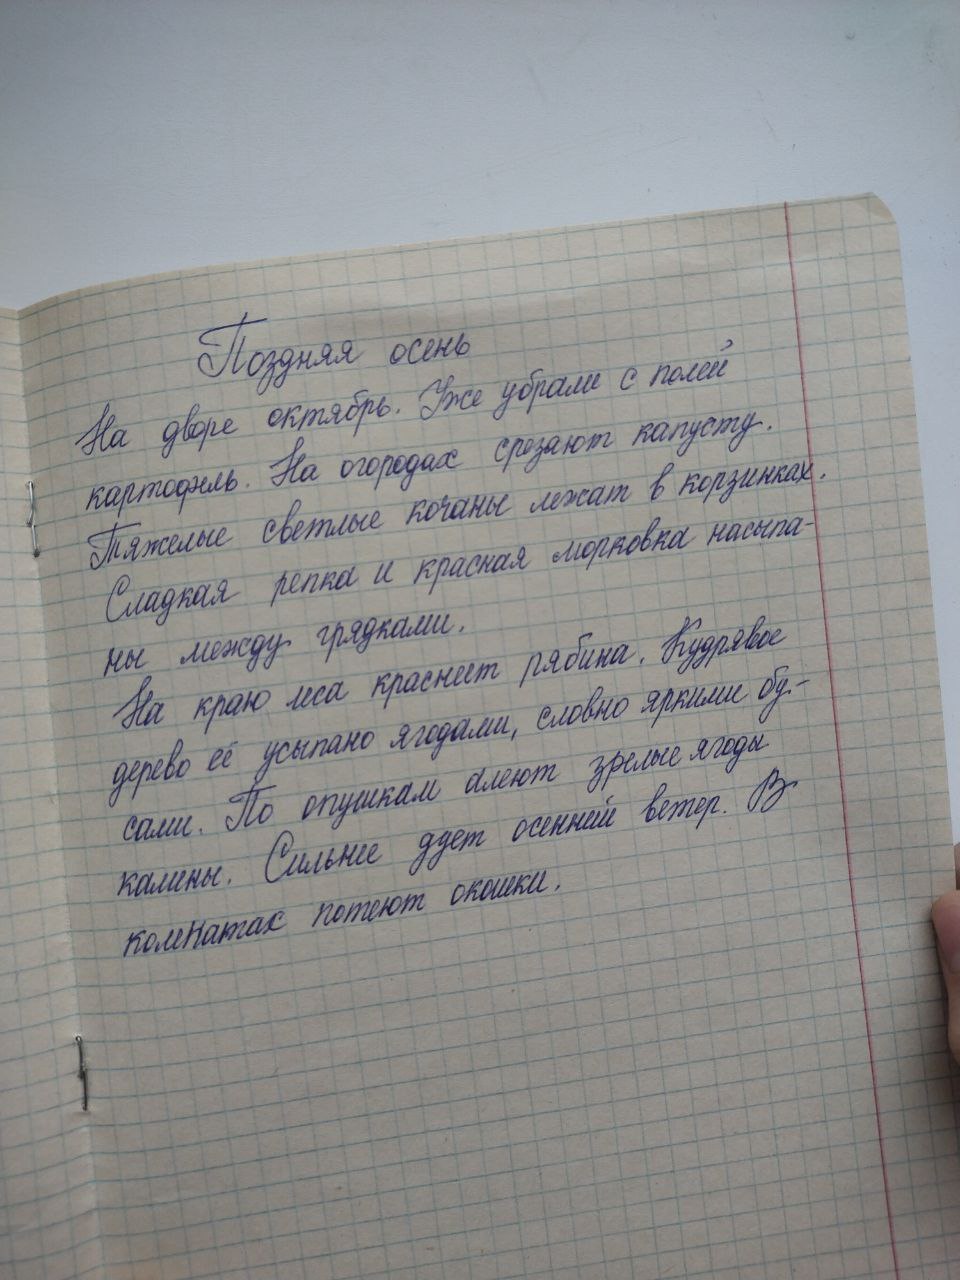 Поздняя осень
На дворе октябрь. Уже убрали с полей
картофель. На огородах срезают капусту.
Тяжелые светлые кочаны лежат в корзинках.
Сладкая репка и красная морковка насыпа-
ны между грядками.
На краю леса краснеет рябина. Кудрявое
дерево её усыпано ягодами, словно яркими бу-
сами. По опушкам алеют зрелые ягоды
калины. Сильнее дует осенний ветер. В
комнатах потеют окошки.